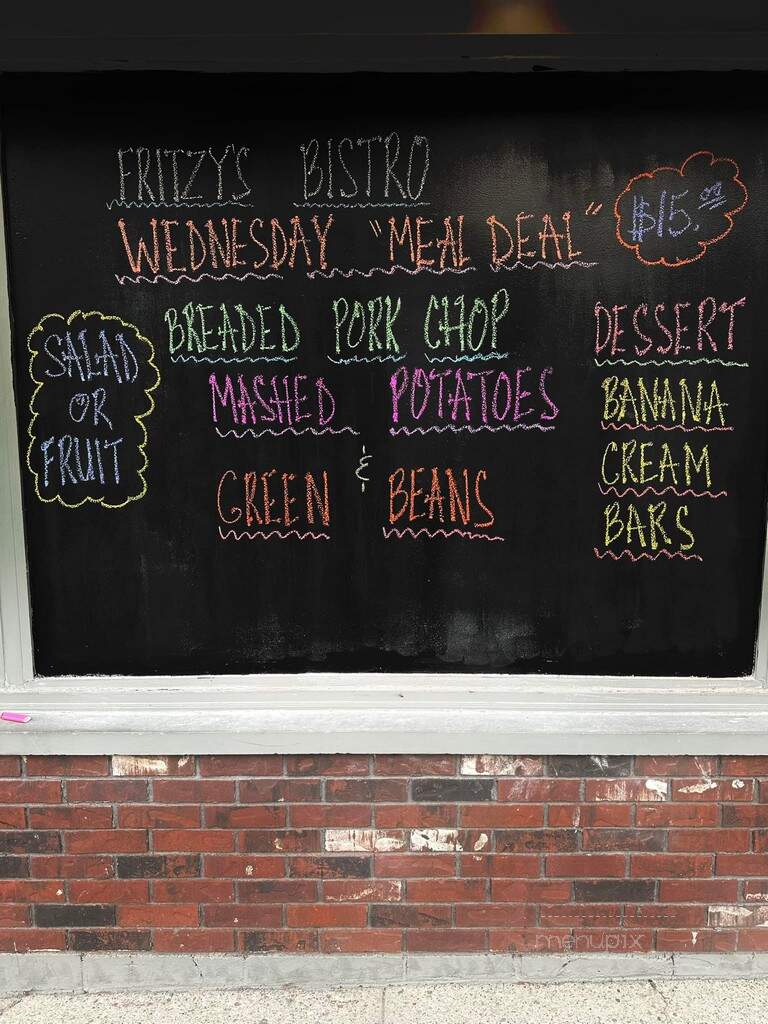 FRITZY'S BISTRO
WEDNESDAY "MEAL DEAL"
$15.00
SALAD
OR
FRUIT
BREADED PORK CHOP
MASHED POTATOES
&
GREEN BEANS
DESSERT
BANANA
CREAM
BARS
menupix